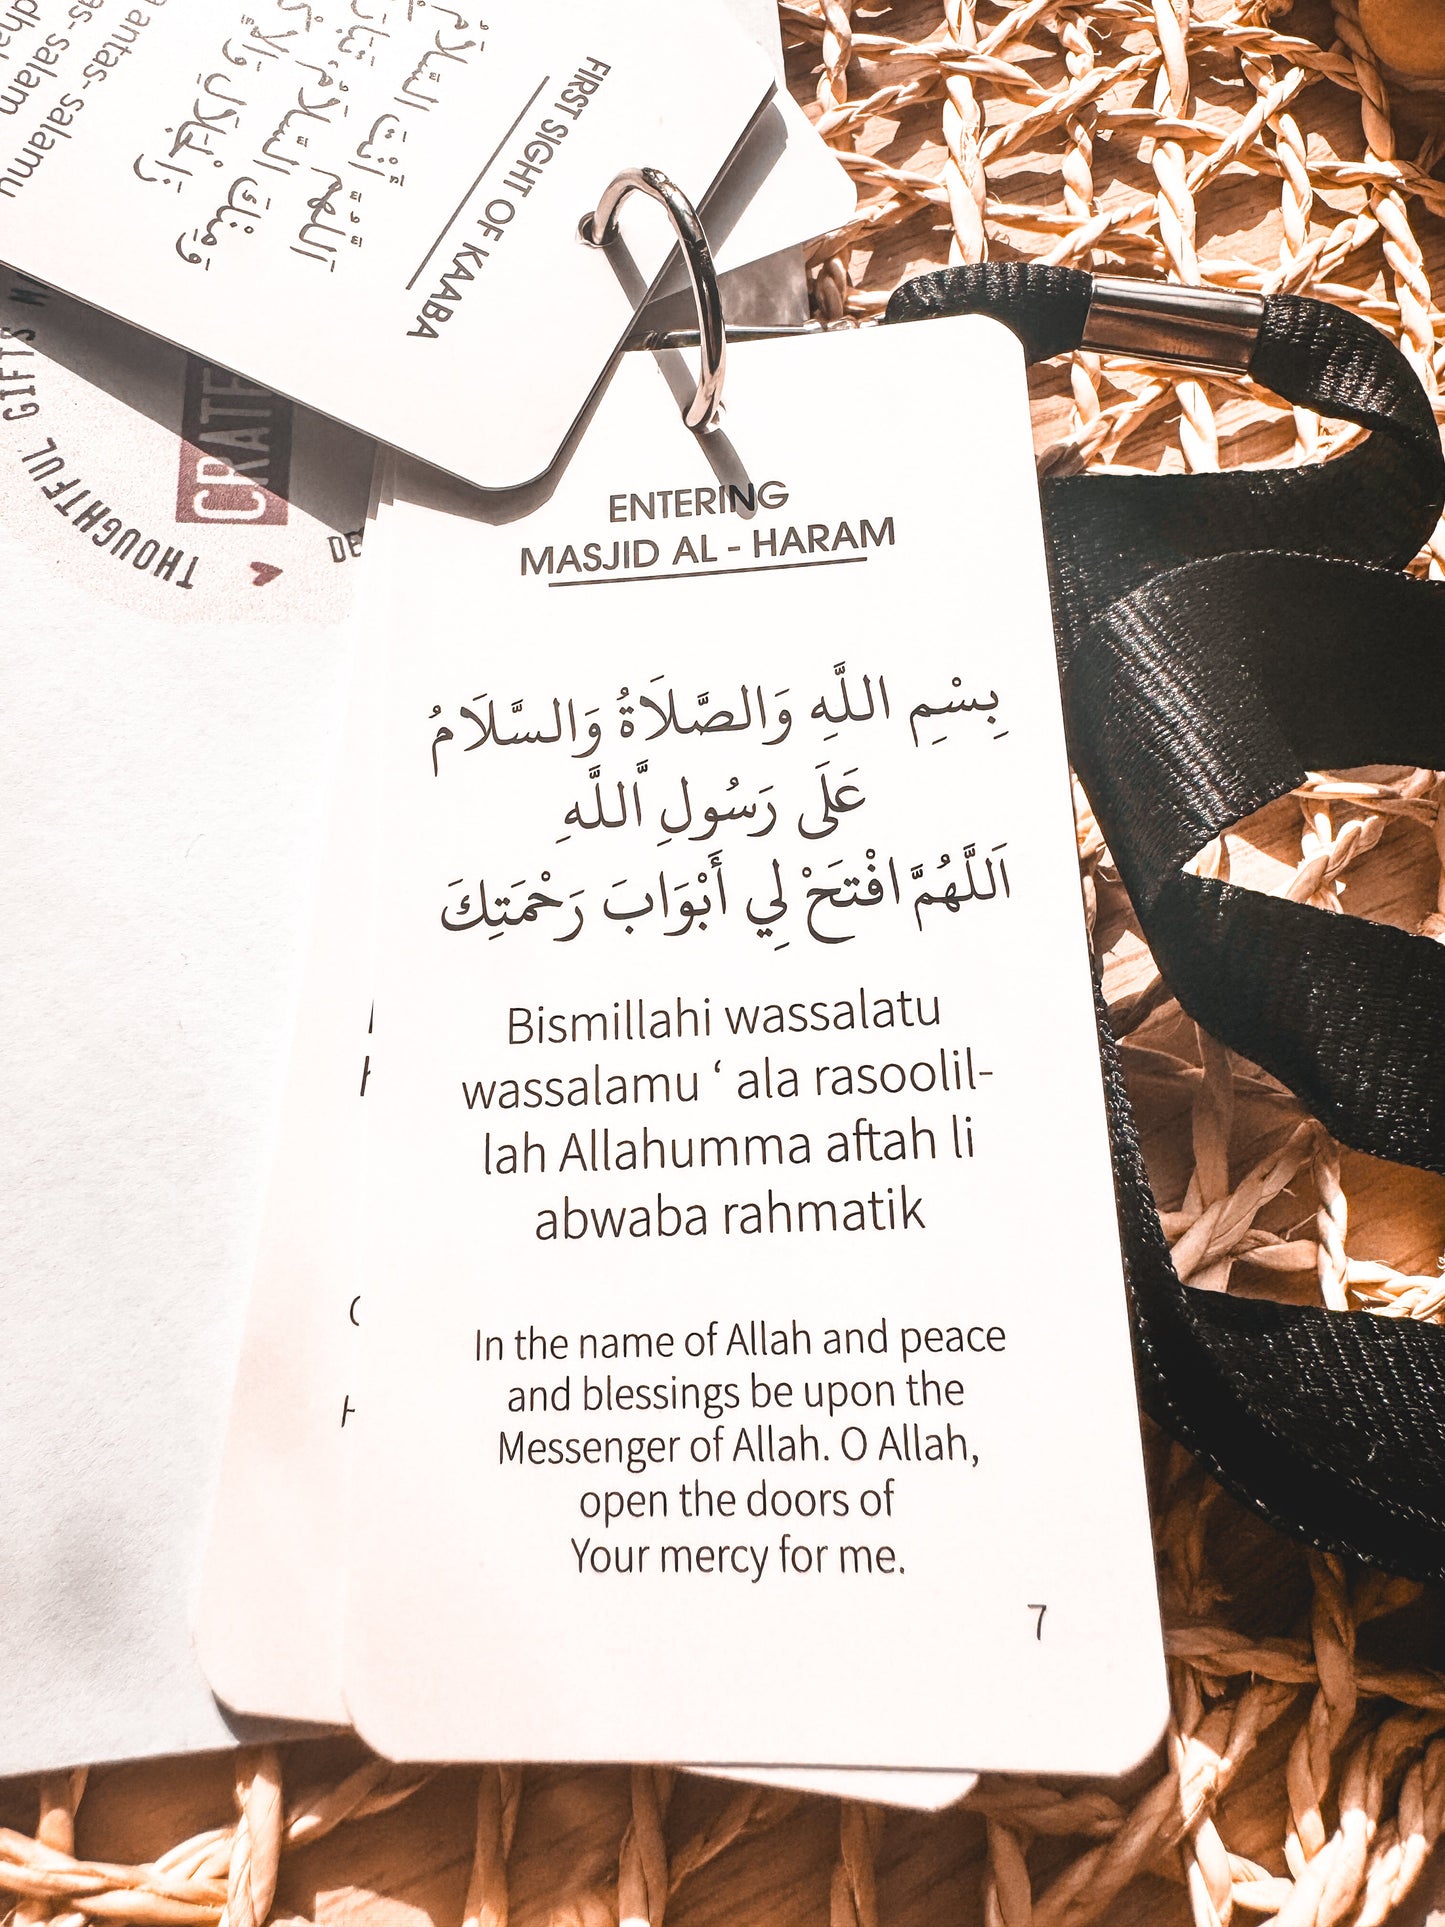 FIRST SIGHT OF KAABA
اَللّٰهُمَّ أَنْتَ السَّلَامُ
وَمِنْكَ السَّلَامُ
antas- salamu
as- salam
THOUGHTFUL GIFTS
CRATE
DE
ENTERING
MASJID AL - HARAM
بِسْمِ اللَّهِ وَالصَّلَاةُ وَالسَّلَامُ
عَلَى رَسُولِ اَّللَّهِ
اَللَّهُمَّ افْتَحْ لِي أَبْوَابَ رَحْمَتِكَ
Bismillahi wassalatu
wassalamu ‘ ala rasoolil-
lah Allahumma aftah li
abwaba rahmatik
In the name of Allah and peace
and blessings be upon the
Messenger of Allah. O Allah,
open the doors of
Your mercy for me.
7